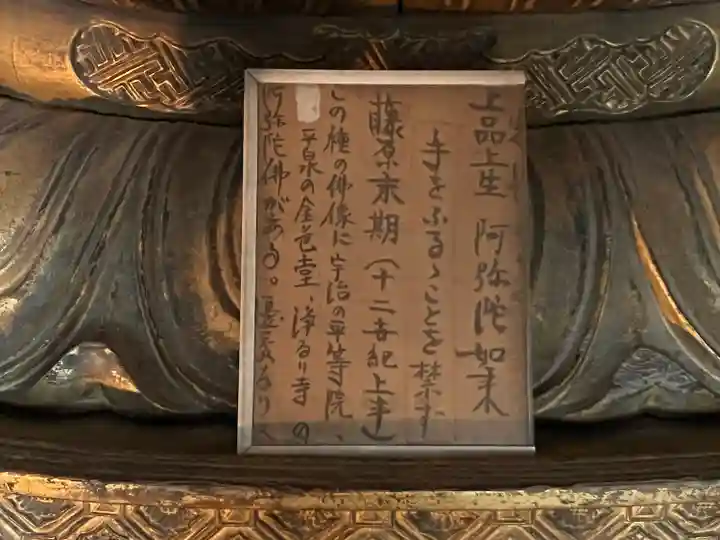 上品上生 阿弥陀如来
手をふるゝことを禁ず
藤原末期(十二世紀上半)
この種の佛像に宇治の平等院、
平泉の金色堂、浄るり寺の
阿弥陀佛がある。